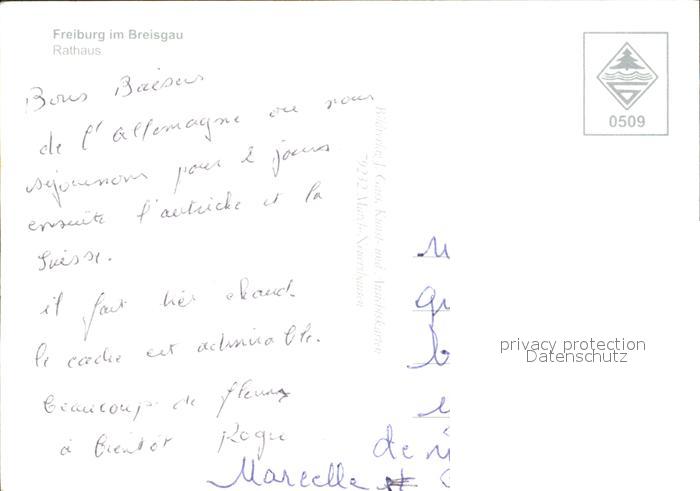 Freiburg im Breisgau
Rathaus
0509
Bons Baisers
de l'Allemagne ou nous
séjournons pour 2 jours
ensuite l'autriche et la
Suisse.
il fait très chaud.
le cadre est admirable.
beaucoup de fleurs
à bientôt
Marcelle et
de
privacy protection
Datenschutz